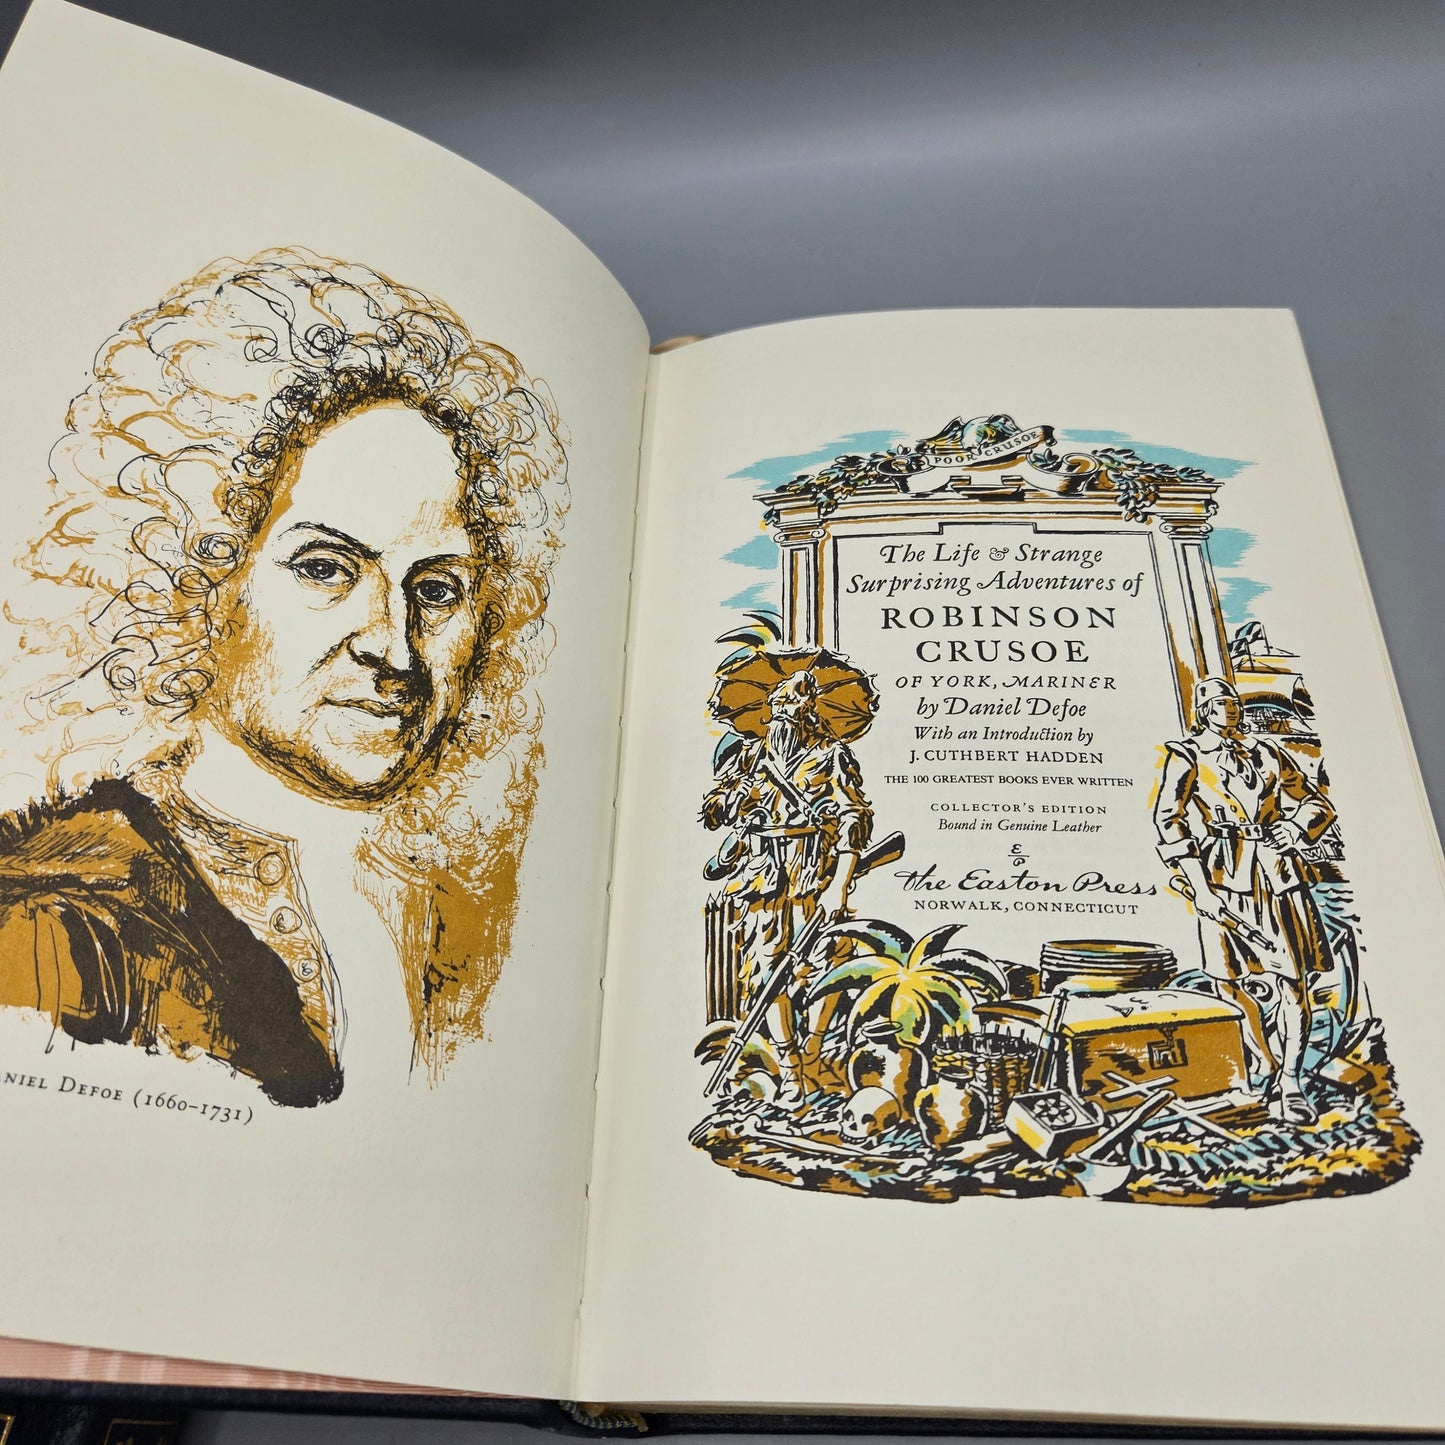 NIEL DEFOE (1660–1731)
POOR CRUSOE
The Life & Strange
Surprising Adventures of
ROBINSON
CRUSOE
OF YORK, MARINER
by Daniel Defoe
With an Introduction by
J. CUTHBERT HADDEN
THE 100 GREATEST BOOKS EVER WRITTEN
COLLECTOR'S EDITION
Bound in Genuine Leather
E
P
The Easton Press
NORWALK, CONNECTICUT